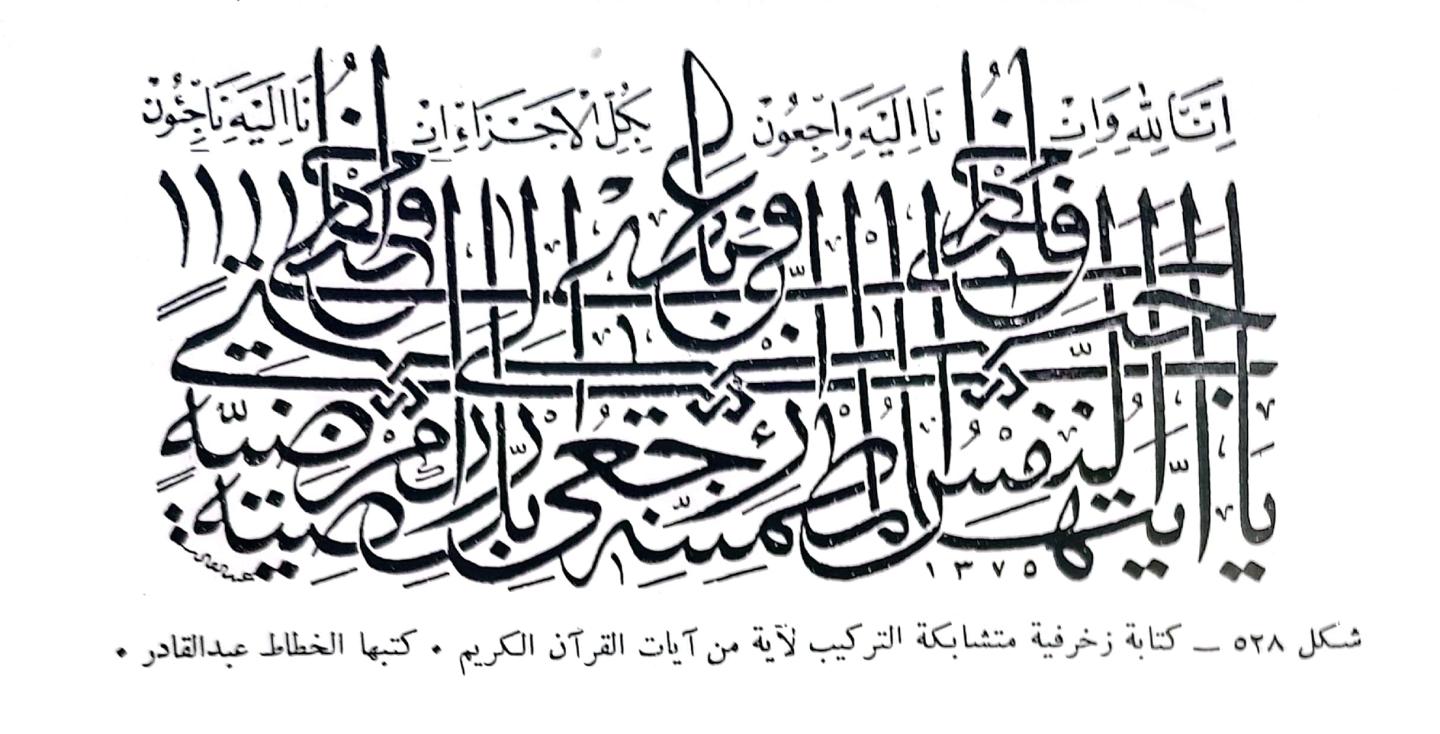 اِنَّا لِلّٰهِ وَاِنَّا اِلَيْهِ رَاجِعُونْ بِكُلِّ الْاَجْزَاءِ اِنَّا اِلَيْهِ
يا ايتها النفس المطمئنة ارجعي الى ربك راضية مرضية
فادخلي في عبادي وادخلي جنتي
١٣٧٥
شكل ٥٢٨ ــ كتابة زخرفية متشابكة التركيب لآية من آيات القرآن الكريم . كتبها الخطاط عبدالقادر .